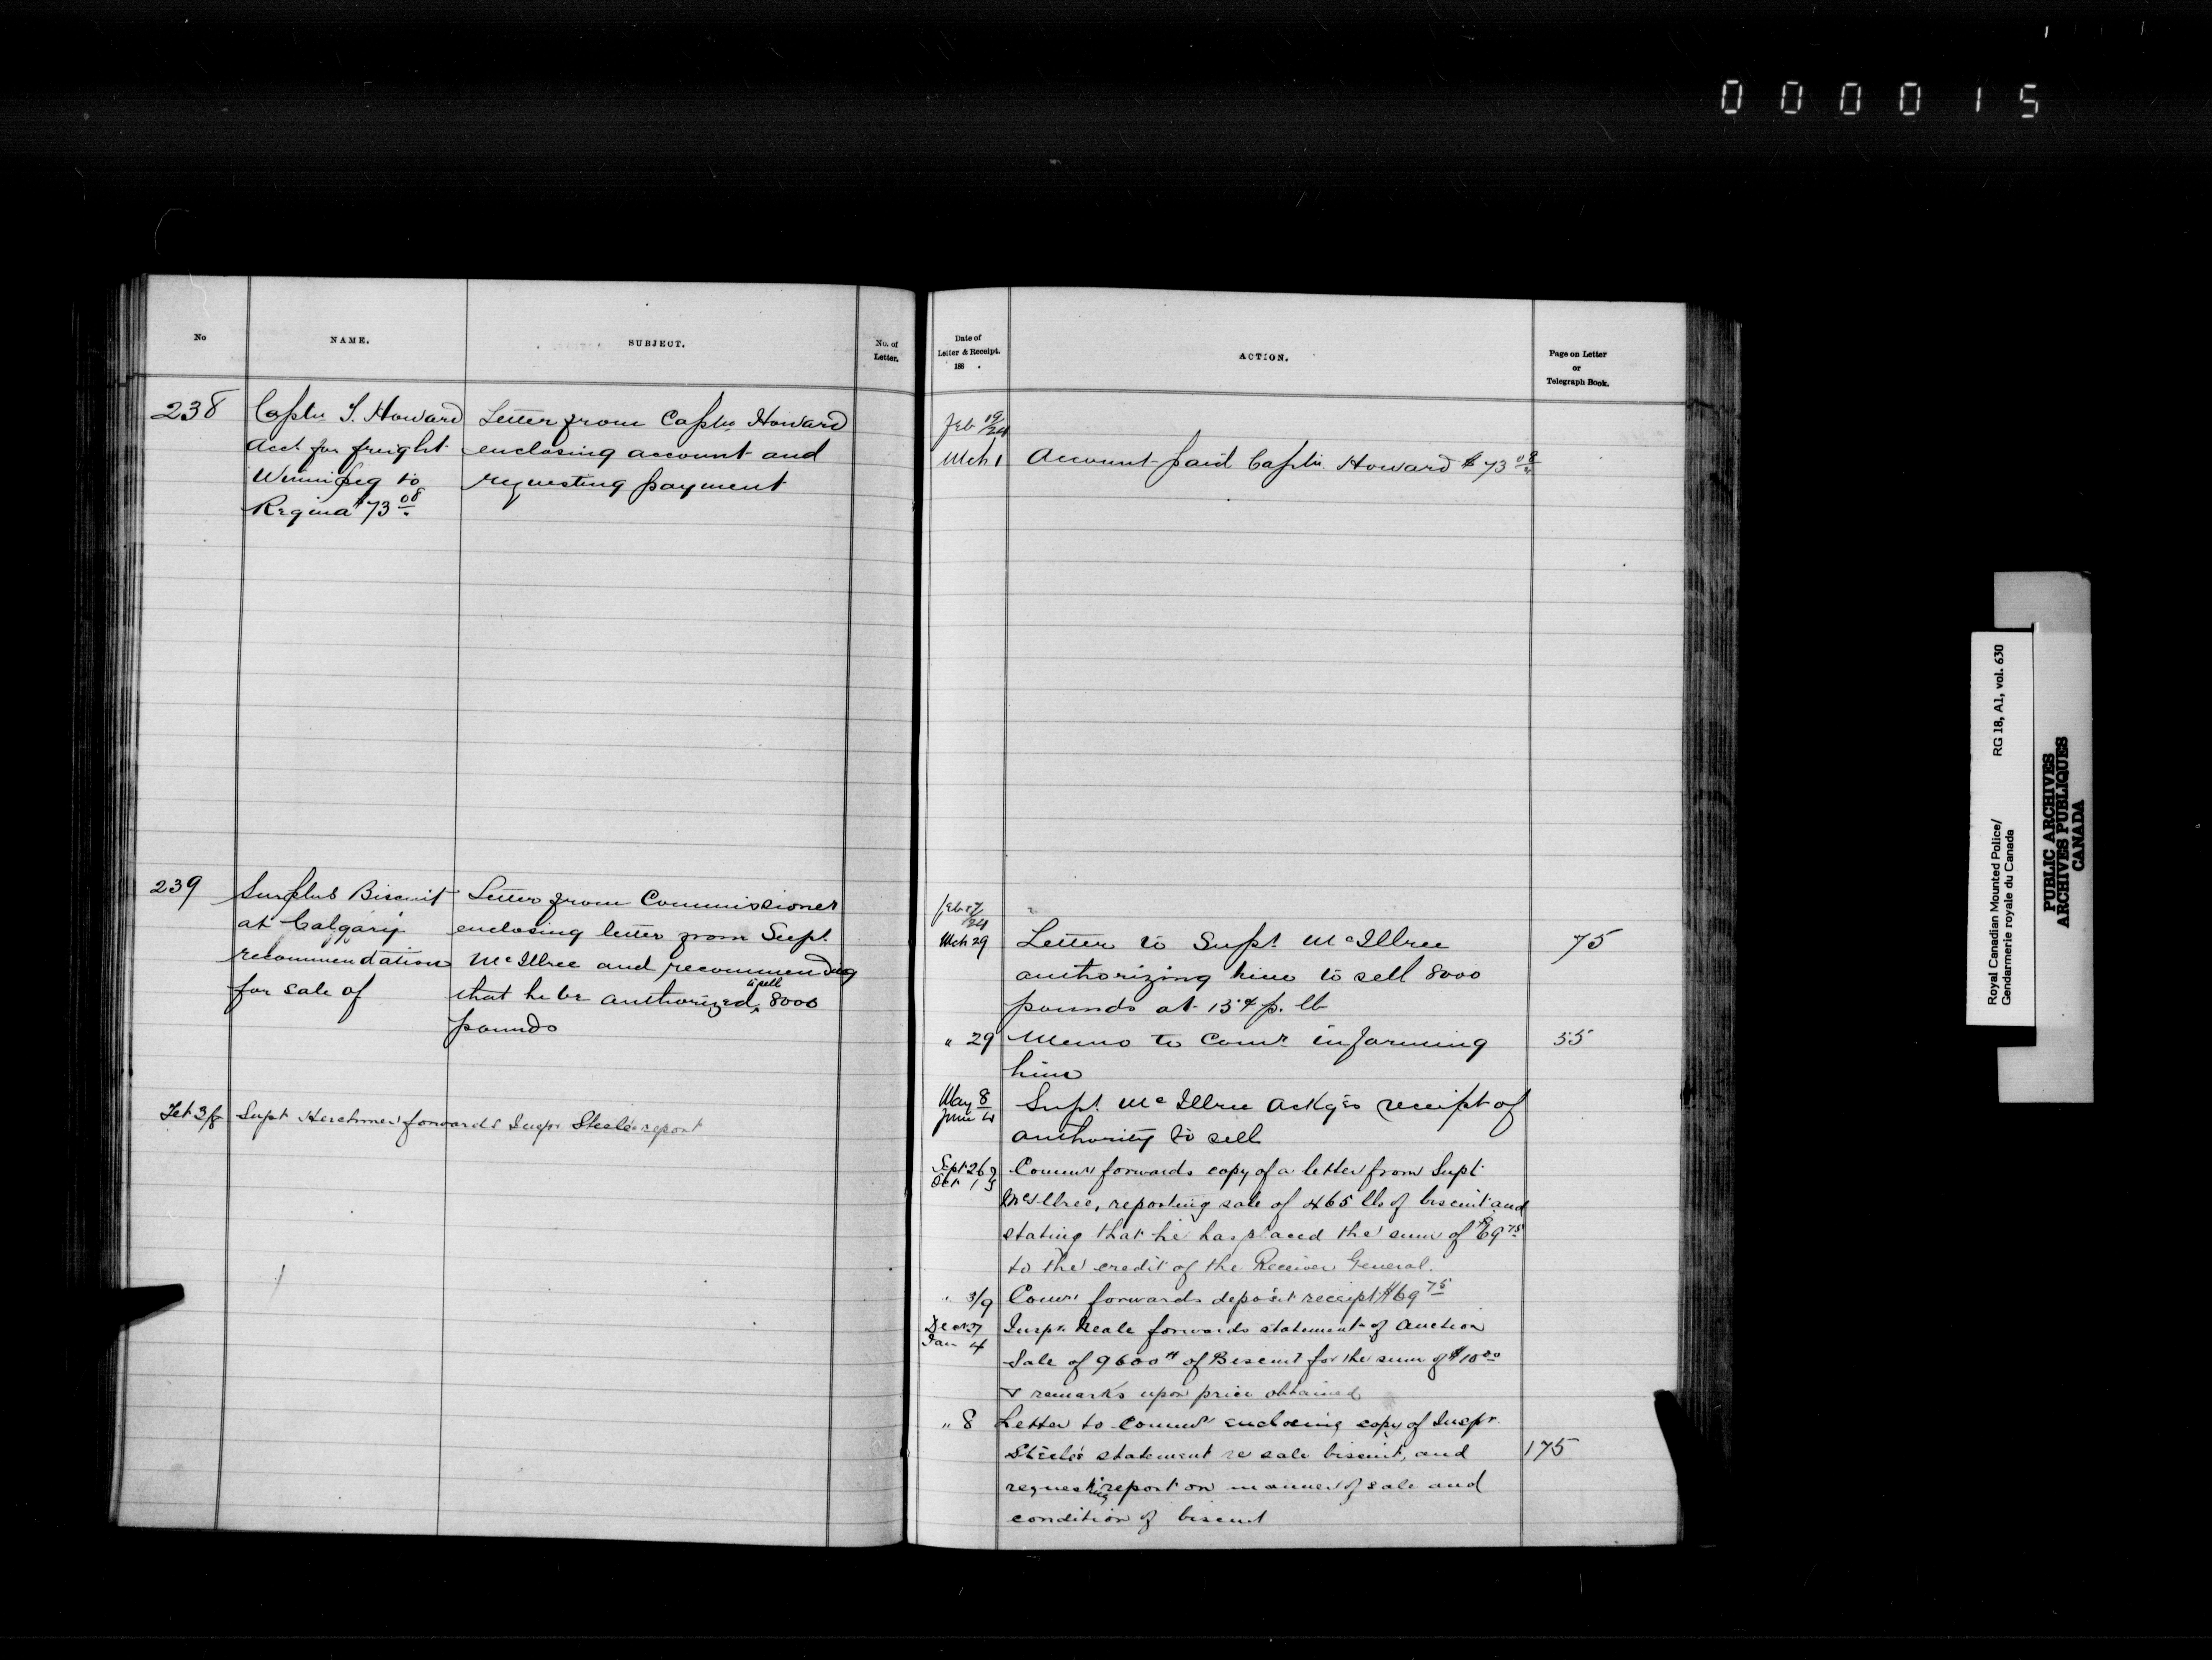 000015
No
NAME.
SUBJECT.
No. of
Letter.
238
Captn J. Howard
Acct for freight
Winnipeg to
Regina $73 08
Letter from Captn Howard
enclosing account and
requesting payment
239
Surplus Biscuit
at Calgary
recommendation
for sale of
Letter from Commissioner
enclosing letter from Supt
McIllree and recommending
that he be authorized to sell 8000
pounds
Feb 3/8 Supt Herchmer forwards Inspr Steele's report
Date of
Letter & Receipt.
188 .
ACTION.
Page on Letter
or
Telegraph Book.
Feb 19/24
Mch 1 Account paid Captn Howard $73 08
Feb 17/24
Mch 29 Letter to Supt McIllree 75
authorizing him to sell 8000
pounds at 15¢ p. lb
" 29 Memo to Comr informing 55
him
May 8 Supt. McIllree ackgs receipt of
June 4
authority to sell
Sept 26 Commr forwards copy of a letter from Supt
Oct 1
McIllree, reporting sale of 465 lbs of biscuit and
stating that he has placed the sum of $69 75
to the credit of the Receiver General.
" 3/9 Commr forwards deposit receipt $69 75
Dec 27 Inspr Neale forwards statement of Auction
Jan 4
Sale of 9600 # of Biscuit for the sum of $10 00
& remarks upon price obtained
" 8 Letter to Commr enclosing copy of Inspr.
Steele's statement re sale biscuit, and 175
requesting report on manner of sale and
condition of biscuit
Royal Canadian Mounted Police/
Gendarmerie royale du Canada
RG 18, A1, vol. 630
PUBLIC ARCHIVES
ARCHIVES PUBLIQUES
CANADA